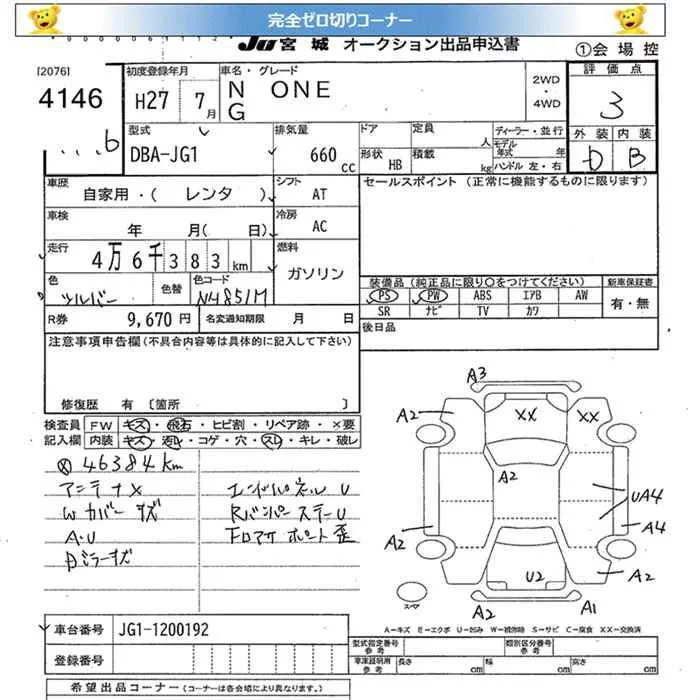 完全ゼロ切りコーナー
JU 宮城 オークション出品申込書
①会場控
[2076]
4146
初度登録年月
H27 7月
車名・グレード
N ONE
G
2WD
・
4WD
評価点
3
外装 内装
D B
型式
DBA-JG1
排気量
660
cc
ドア
形状 HB
定員
人
積載
kg
ディーラー・並行
モデル年式 年
ハンドル 左・右
車歴
自家用・( レンタ )
シフト
AT
セールスポイント (正常に機能するものに限ります)
車検
年 月( 日)
冷房
AC
走行
4万6千383km
燃料
ガソリン
色
シルバー
色替
色コード
NH851M
装備品 (純正品に限り○をつけてください)
新車保証書
PS PW ABS エアB AW
SR ナビ TV カワ
有・無
R券 9,670円
名変通知期限 月 日
後日品
注意事項申告欄(不具合内容等は具体的に記入して下さい)
修復歴 有 〔箇所 〕
検査員記入欄
FW キズ・飛石・ヒビ割・リペア跡・×要
内装 キズ・汚レ・コゲ・穴・スレ・キレ・破レ
46384km
アンテナX
Wカバーキズ
A・U
Dミラーキズ
エンドパネルU
RバンパーステーU
Fロアサポート歪
A3
A2
XX
XX
A2
UA4
A2
A4
U2
A2
A2
A1
スペア
A−キズ E−エクボ U−凹み W−補修跡 S−サビ C−腐食 XX−交換済
車台番号 JG1-1200192
登録番号
型式指定番号 参考
類別区分番号 参考
車庫証明用 参考
長さ cm
幅 cm
高さ cm
希望出品コーナー (コーナーは各会場により異なります。)